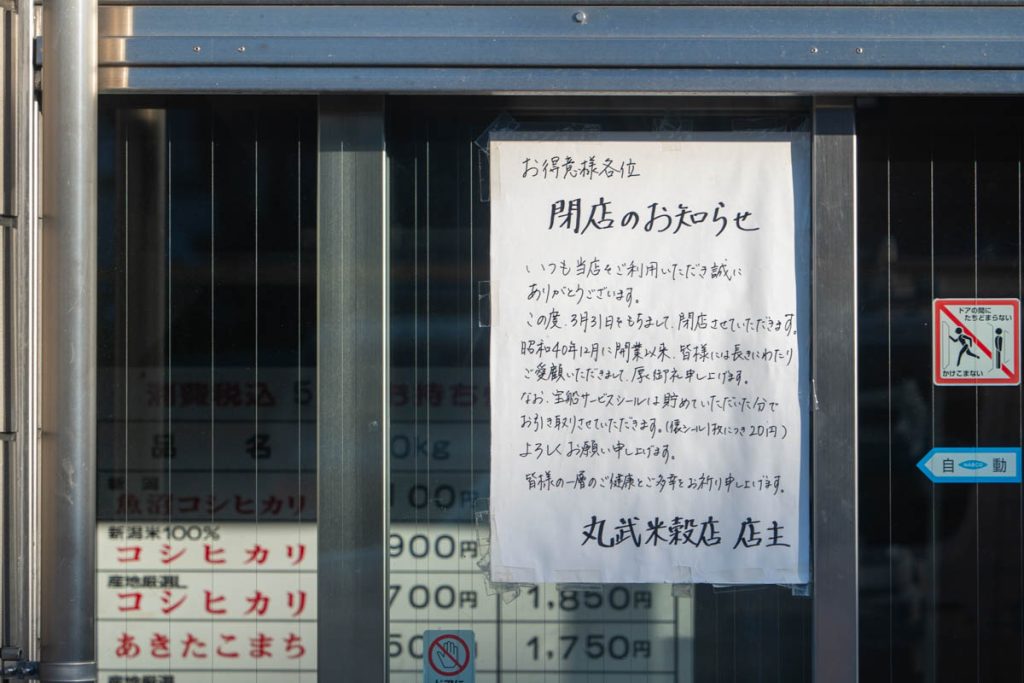 お得意様各位
閉店のお知らせ
いつも当店をご利用いただき誠に
ありがとうございます。
この度、3月31日をもちまして、閉店させていただきます。
昭和40年12月に開業以来、皆様には長きにわたり
ご愛顧いただきまして、厚く御礼申し上げます。
なお、宝船サービスシールは貯めていただいた分で
お引き取りさせていただきます。(俵シール1枚につき20円)
よろしくお願い申し上げます。
皆様の一層のご健康とご多幸をお祈り申し上げます。
丸武米穀店 店主
消費税込 5 お持ち
品 名 0kg
新潟
魚沼コシヒカリ 100円
新潟米100%
コシヒカリ 900円
産地厳選
コシヒカリ 700円 1,850円
あきたこまち 50円 1,750円
産地厳選
ドアの間に
たちどまらない
かけこまない
自 NABCO 動
ドアに